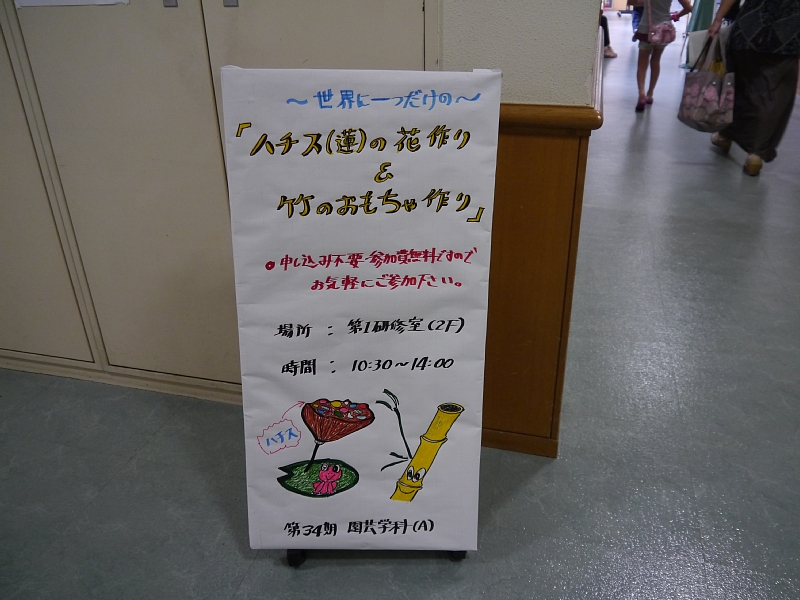 ～世界に一つだけの～
「ハチス(蓮)の花作り
&
竹のおもちゃ作り」
申し込み不要・参加費無料ですので
お気軽にご参加下さい。
場所：第1研修室(2F)
時間：10:30～14:00
ハチス
第34期 園芸学科(A)